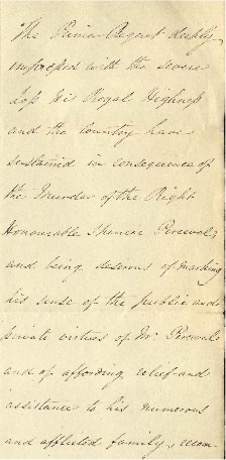 The Prince Regent deeply
impressed with the severe
loss His Royal Highness
and the Country have
sustained in consequence of
the Murder of the Right
Honourable Spencer Perceval,
and being desirous of marking
his sense of the public and
private virtues of Mr Perceval
and of affording relief and
assistance to his numerous
and afflicted family, recom-